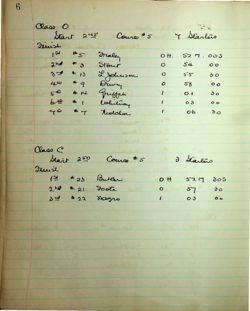 6
Class O
Start 2nd Course #5 7 Starters
Finish
1st #5 0 H 52 M 00S
2nd #3 Stout 0 54 00
3rd #13 L Johnson 0 55 30
4th #9 Drury 0 58 00
5th #14 Griffin 1 01 30
6th #1 Whitney 1 03 00
7th #7 1 06 30
Class C
Start 2nd Course #5 3 Starters
Finish
1st #23 Butler 0 H 52 M 30S
2nd #21 Foote 0 57 30
3rd #22 1 03 00